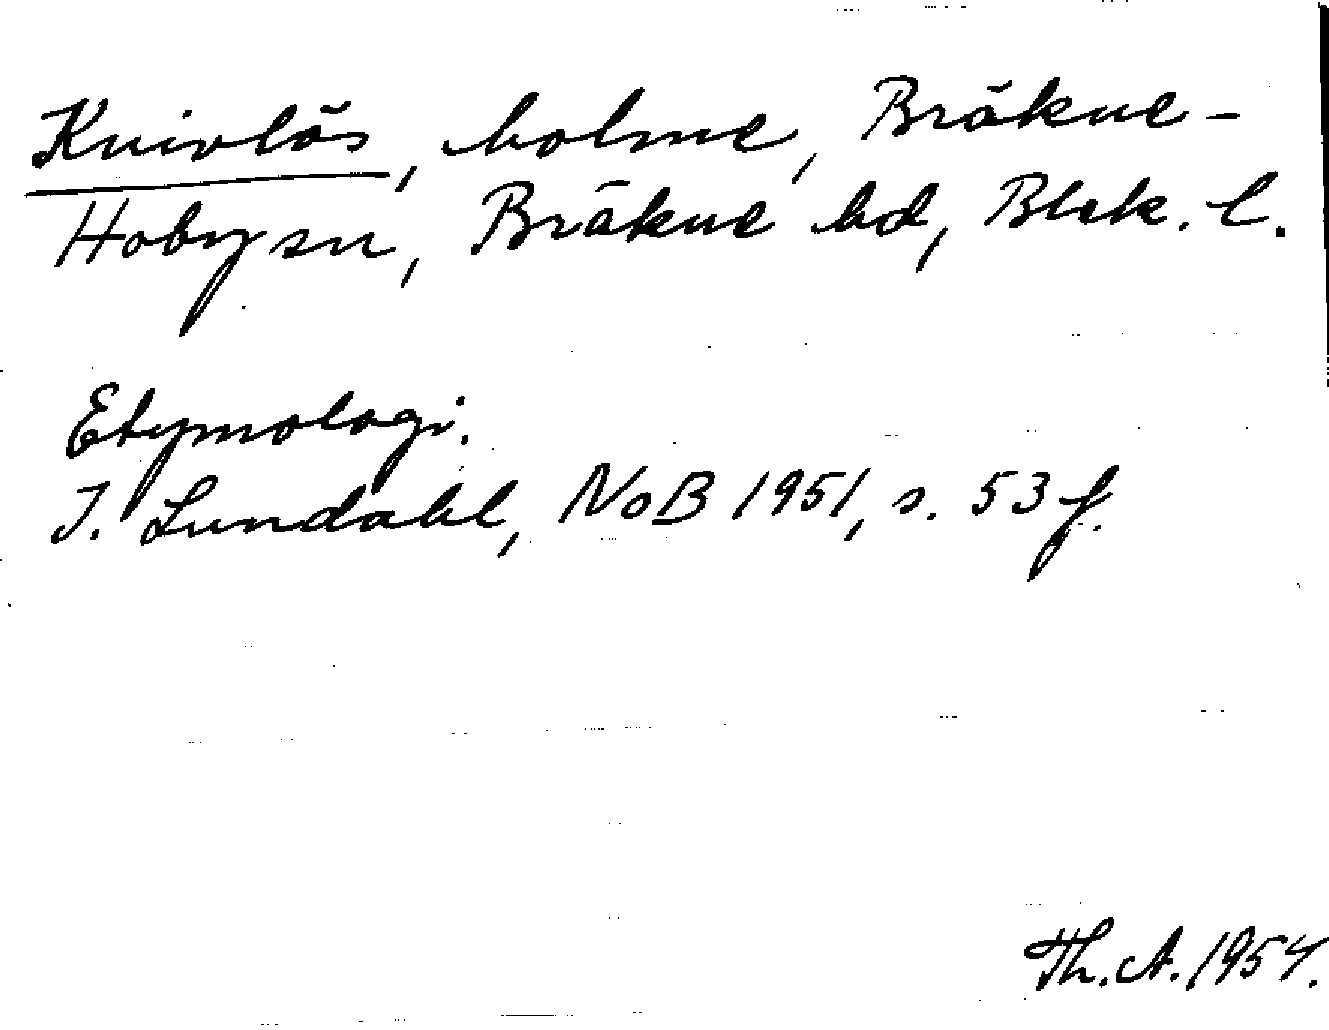 Knivlös, holme, Bräkne-
Hoby sn, Bräkne hd, Blek. l.
Etymologi.
I. Lundahl, NoB 1951, s. 53 f.
Th. A. 1954.